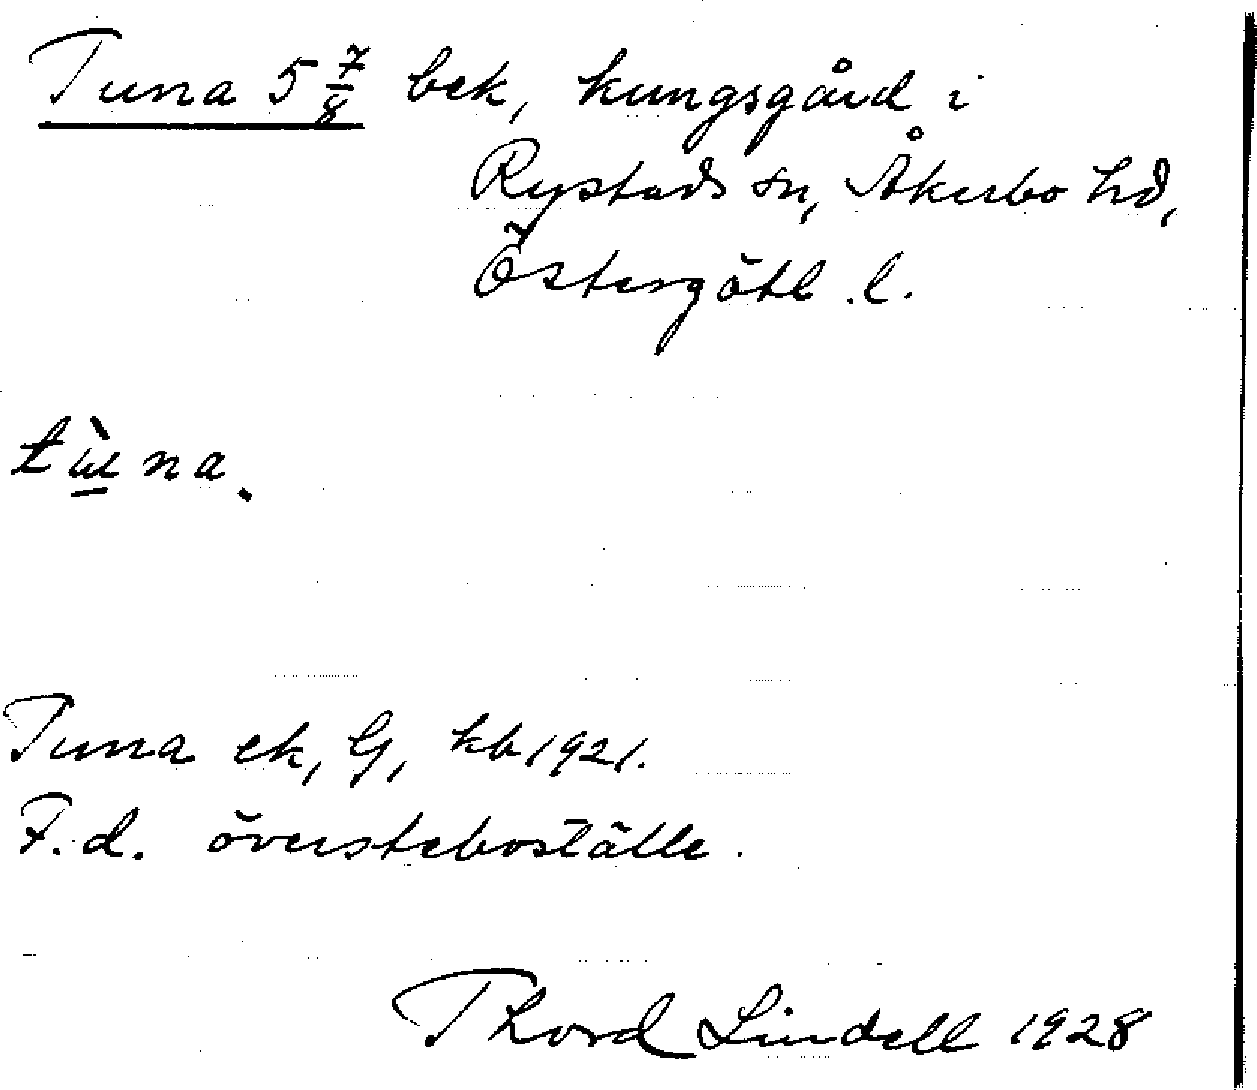 Tuna 5 7/8 bek, kungsgård i
Rystads sn, Åkerbo hd,
Östergötl. l.
tu̱̇̀na.
Tuna ek, G, kb 1921.
F.d. översteboställe.
Thord Lindell 1928